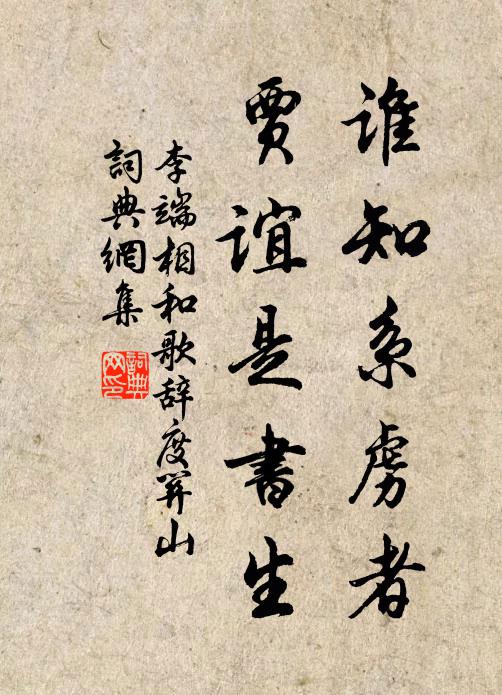 誰知系虏者
賈誼是書生
李端相和歌辞度關山
詞典網集
詞典
网印